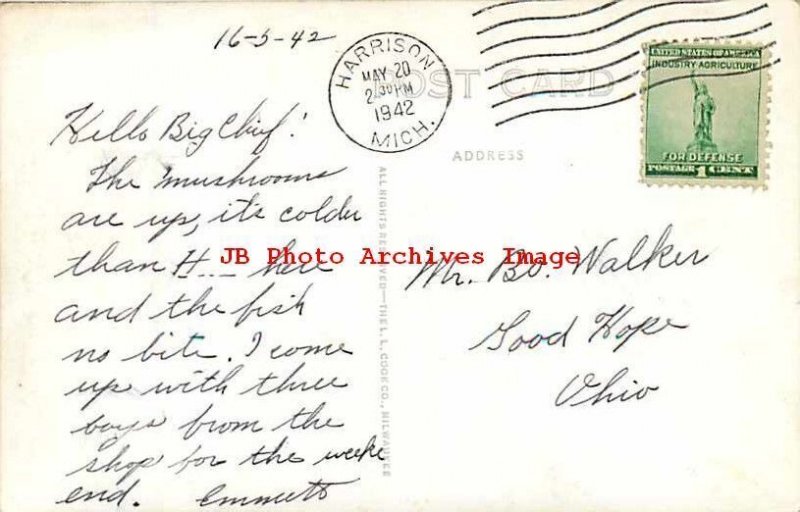 16-5-42
HARRISON
MAY 20
2:30 PM
1942
MICH.
POST CARD
UNITED STATES OF AMERICA
INDUSTRY-AGRICULTURE
FOR DEFENSE
POSTAGE 1 CENT
ADDRESS
Hello Big Chief!
The mushrooms
are up, it's colder
than H... here
and the fish
no bite. I come
up with three
boys from the
shop for the weeke
end. Emmett
ALL RIGHTS RESERVED—THE L. L. COOK CO., MILWAUKEE
JB Photo Archives Image
Mr. Bo. Walker
Good Hope
Ohio